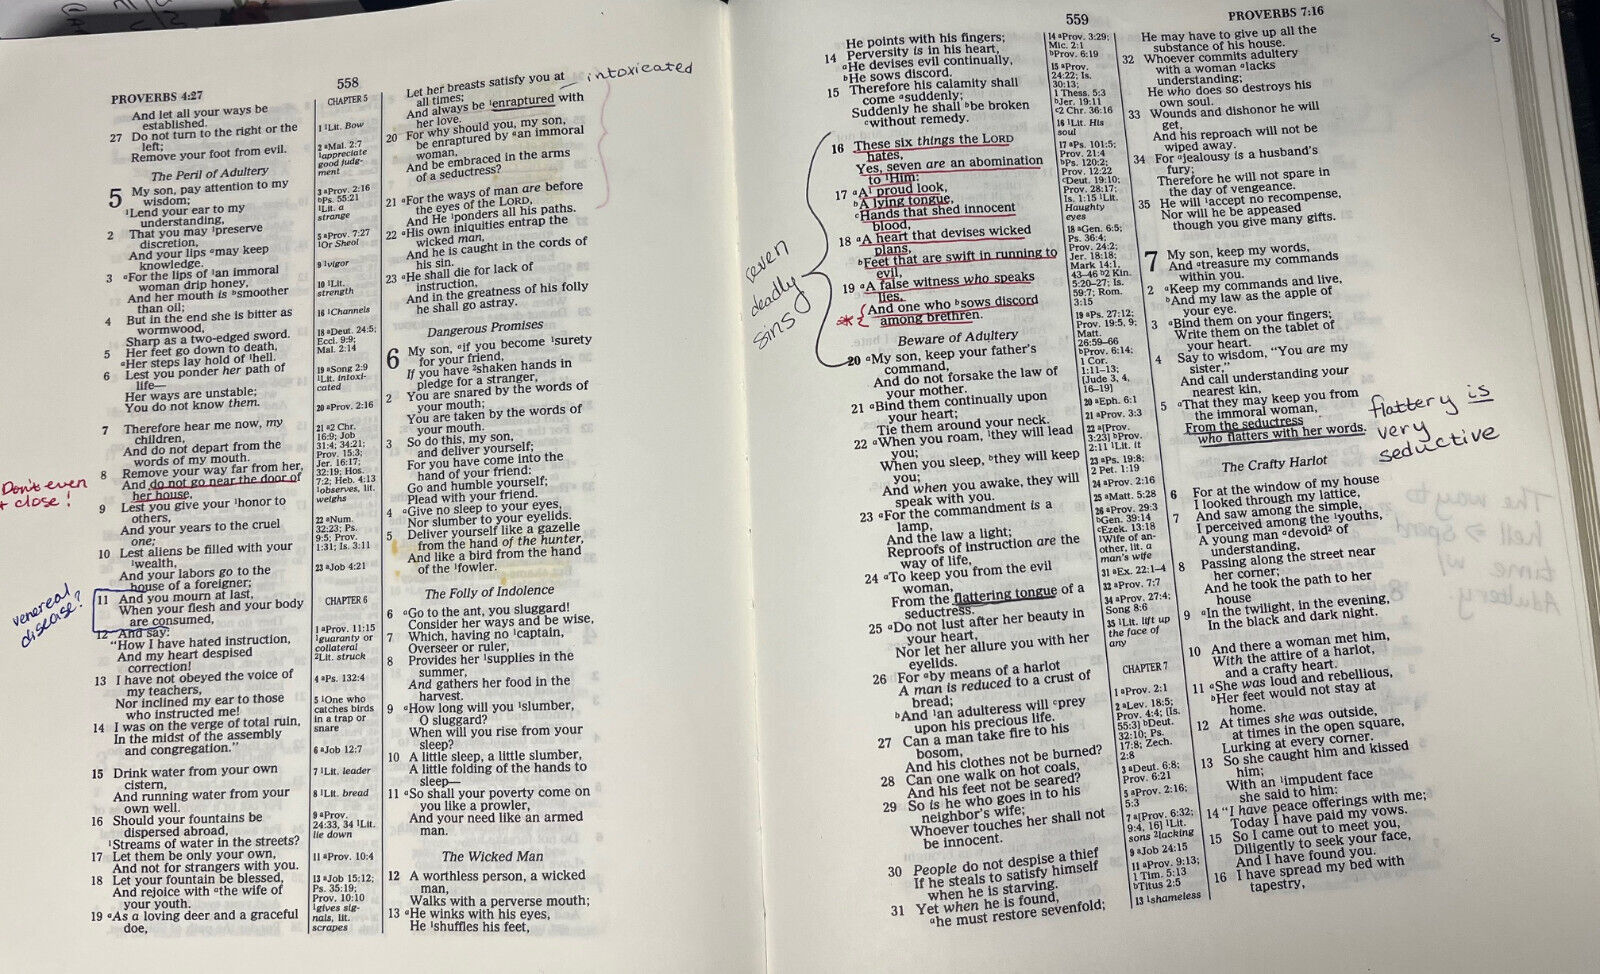 558
PROVERBS 4:27
And let all your ways be
established.
27 Do not turn to the right or the
left;
Remove your foot from evil.
The Peril of Adultery
5 My son, pay attention to my
wisdom;
¹Lend your ear to my
understanding,
2 That you may ¹preserve
discretion,
And your lips ᵃmay keep
knowledge.
3 ᵃFor the lips of ¹an immoral
woman drip honey,
And her mouth is ᵇsmoother
than oil;
4 But in the end she is bitter as
wormwood,
Sharp as a two-edged sword.
5 Her feet go down to death,
ᵃHer steps lay hold of ¹hell.
6 Lest you ponder her path of
life—
Her ways are unstable;
You do not know them.
7 Therefore hear me now, my
children,
And do not depart from the
words of my mouth.
8 Remove your way far from her,
And do not go near the door of
her house,
Don't even
close!
9 Lest you give your ¹honor to
others,
And your years to the cruel
one;
10 Lest aliens be filled with your
¹wealth,
And your labors go to the
house of a foreigner;
11 And you mourn at last,
When your flesh and your body
are consumed,
venereal
disease?
12 And say:
"How I have hated instruction,
And my heart despised
correction!
13 I have not obeyed the voice of
my teachers,
Nor inclined my ear to those
who instructed me!
14 I was on the verge of total ruin,
In the midst of the assembly
and congregation."
15 Drink water from your own
cistern,
And running water from your
own well.
16 Should your fountains be
dispersed abroad,
¹Streams of water in the streets?
17 Let them be only your own,
And not for strangers with you.
18 Let your fountain be blessed,
And rejoice with ᵃthe wife of
your youth.
19 ᵃAs a loving deer and a graceful
doe,
CHAPTER 5
1 ¹Lit. Bow
2 ᵃMal. 2:7
¹appreciate
good judg-
ment
3 ᵃProv. 2:16
ᵇPs. 55:21
¹Lit. a
strange
5 ᵃProv. 7:27
¹Or Sheol
9 ¹vigor
10 ¹Lit.
strength
16 ¹Channels
18 ᵃDeut. 24:5;
Eccl. 9:9;
Mal. 2:14
19 ᵃSong 2:9
¹Lit. intoxi-
cated
20 ᵃProv. 2:16
21 ᵃ2 Chr.
16:9; Job
31:4; 34:21;
Prov. 15:3;
Jer. 16:17;
32:19; Hos.
7:2; Heb. 4:13
¹observes, lit.
weighs
22 ᵃNum.
32:23; Ps.
9:5; Prov.
1:31; Is. 3:11
23 ᵃJob 4:21
CHAPTER 6
1 ᵃProv. 11:15
¹guaranty or
collateral
²Lit. struck
4 ᵃPs. 132:4
5 ¹One who
catches birds
in a trap or
snare
6 ᵃJob 12:7
7 ¹Lit. leader
8 ¹Lit. bread
9 ᵃProv.
24:33, 34 ¹Lit.
lie down
11 ᵃProv. 10:4
13 ᵃJob 15:12;
Ps. 35:19;
Prov. 10:10
¹gives sig-
nals, lit.
scrapes
Let her breasts satisfy you at
all times;
And always be ¹enraptured with
her love.
intoxicated
20 For why should you, my son,
be enraptured by ᵃan immoral
woman,
And be embraced in the arms
of a seductress?
21 ᵃFor the ways of man are before
the eyes of the LORD,
And He ¹ponders all his paths.
22 ᵃHis own iniquities entrap the
wicked man,
And he is caught in the cords of
his sin.
23 ᵃHe shall die for lack of
instruction,
And in the greatness of his folly
he shall go astray.
Dangerous Promises
6 My son, ᵃif you become ¹surety
for your friend,
If you have ²shaken hands in
pledge for a stranger,
2 You are snared by the words of
your mouth;
You are taken by the words of
your mouth.
3 So do this, my son,
and deliver yourself;
For you have come into the
hand of your friend:
Go and humble yourself;
Plead with your friend.
4 ᵃGive no sleep to your eyes,
Nor slumber to your eyelids.
5 Deliver yourself like a gazelle
from the hand of the hunter,
And like a bird from the hand
of the ¹fowler.
The Folly of Indolence
6 ᵃGo to the ant, you sluggard!
Consider her ways and be wise,
7 Which, having no ¹captain,
Overseer or ruler,
8 Provides her ¹supplies in the
summer,
And gathers her food in the
harvest.
9 ᵃHow long will you ¹slumber,
O sluggard?
When will you rise from your
sleep?
10 A little sleep, a little slumber,
A little folding of the hands to
sleep—
11 ᵃSo shall your poverty come on
you like a prowler,
And your need like an armed
man.
The Wicked Man
12 A worthless person, a wicked
man,
Walks with a perverse mouth;
13 ᵃHe winks with his eyes,
He ¹shuffles his feet,
559
PROVERBS 7:16
He points with his fingers;
14 Perversity is in his heart,
ᵃHe devises evil continually,
ᵇHe sows discord.
15 Therefore his calamity shall
come ᵃsuddenly;
Suddenly he shall ᵇbe broken
ᶜwithout remedy.
16 These six things the LORD
hates,
Yes, seven are an abomination
to ¹Him:
17 ᵃA¹ proud look,
ᵇA lying tongue,
ᶜHands that shed innocent
blood,
18 ᵃA heart that devises wicked
plans,
ᵇFeet that are swift in running to
evil,
19 ᵃA false witness who speaks
lies,
And one who ᵇsows discord
among brethren.
seven
deadly
sins
Beware of Adultery
20 ᵃMy son, keep your father's
command,
And do not forsake the law of
your mother.
21 ᵃBind them continually upon
your heart;
Tie them around your neck.
22 ᵃWhen you roam, ¹they will lead
you;
When you sleep, ᵇthey will keep
you;
And when you awake, they will
speak with you.
23 ᵃFor the commandment is a
lamp,
And the law a light;
Reproofs of instruction are the
way of life,
24 ᵃTo keep you from the evil
woman,
From the flattering tongue of a
seductress.
25 ᵃDo not lust after her beauty in
your heart,
Nor let her allure you with her
eyelids.
26 For ᵃby means of a harlot
A man is reduced to a crust of
bread;
ᵇAnd ¹an adulteress will ᶜprey
upon his precious life.
27 Can a man take fire to his
bosom,
And his clothes not be burned?
28 Can one walk on hot coals,
And his feet not be seared?
29 So is he who goes in to his
neighbor's wife;
Whoever touches her shall not
be innocent.
30 People do not despise a thief
If he steals to satisfy himself
when he is starving.
31 Yet when he is found,
ᵃhe must restore sevenfold;
14 ᵃProv. 3:29;
Mic. 2:1
ᵇProv. 6:19
15 ᵃProv.
24:22; Is.
30:13;
1 Thess. 5:3
ᵇJer. 19:11
ᶜ2 Chr. 36:16
16 ¹Lit. His
soul
17 ᵃPs. 101:5;
Prov. 21:4
ᵇPs. 120:2;
Prov. 12:22
ᶜDeut. 19:10;
Prov. 28:17;
Is. 1:15 ¹Lit.
Haughty
eyes
18 ᵃGen. 6:5;
Ps. 36:4;
Prov. 24:2;
Jer. 18:18;
Mark 14:1,
43–46 ᵇ2 Kin.
5:20–27; Is.
59:7; Rom.
3:15
19 ᵃPs. 27:12;
Prov. 19:5, 9;
Matt.
26:59–66
ᵇProv. 6:14;
1 Cor.
1:11–13;
[Jude 3, 4,
16–19]
20 ᵃEph. 6:1
21 ᵃProv. 3:3
22 ᵃ[Prov.
3:23] ᵇProv.
2:11 ¹Lit. it
23 ᵃPs. 19:8;
2 Pet. 1:19
24 ᵃProv. 2:16
25 ᵃMatt. 5:28
26 ᵃProv. 29:3
ᵇGen. 39:14
ᶜEzek. 13:18
¹Wife of an-
other, lit. a
man's wife
31 ᵃEx. 22:1–4
32 ᵃProv. 7:7
34 ᵃProv. 27:4;
Song 8:6
35 ¹Lit. lift up
the face of
any
CHAPTER 7
1 ᵃProv. 2:1
2 ᵃLev. 18:5;
Prov. 4:4; [Is.
55:3] ᵇDeut.
32:10; Ps.
17:8; Zech.
2:8
3 ᵃDeut. 6:8;
Prov. 6:21
5 ᵃProv. 2:16;
5:3
7 ᵃ[Prov. 6:32;
9:4, 16] ¹Lit.
sons ²lacking
9 ᵃJob 24:15
11 ᵃProv. 9:13;
1 Tim. 5:13
ᵇTitus 2:5
13 ¹shameless
He may have to give up all the
substance of his house.
32 Whoever commits adultery
with a woman ᵃlacks
understanding;
He who does so destroys his
own soul.
33 Wounds and dishonor he will
get,
And his reproach will not be
wiped away.
34 For ᵃjealousy is a husband's
fury;
Therefore he will not spare in
the day of vengeance.
35 He will ¹accept no recompense,
Nor will he be appeased
though you give many gifts.
7 My son, keep my words,
And ᵃtreasure my commands
within you.
2 ᵃKeep my commands and live,
ᵇAnd my law as the apple of
your eye.
3 ᵃBind them on your fingers;
Write them on the tablet of
your heart.
4 Say to wisdom, "You are my
sister,"
And call understanding your
nearest kin,
5 ᵃThat they may keep you from
the immoral woman,
From the seductress
who flatters with her words.
flattery is
very
seductive
The Crafty Harlot
6 For at the window of my house
I looked through my lattice,
7 And saw among the simple,
I perceived among the ¹youths,
A young man ᵃdevoid² of
understanding,
8 Passing along the street near
her corner;
And he took the path to her
house
9 ᵃIn the twilight, in the evening,
In the black and dark night.
10 And there a woman met him,
With the attire of a harlot,
and a crafty heart.
11 ᵃShe was loud and rebellious,
ᵇHer feet would not stay at
home.
12 At times she was outside,
at times in the open square,
Lurking at every corner.
13 So she caught him and kissed
him;
With an ¹impudent face
she said to him:
14 "I have peace offerings with me;
Today I have paid my vows.
15 So I came out to meet you,
Diligently to seek your face,
And I have found you.
16 I have spread my bed with
tapestry,
The way to
hell → spend
time w/
Adultery